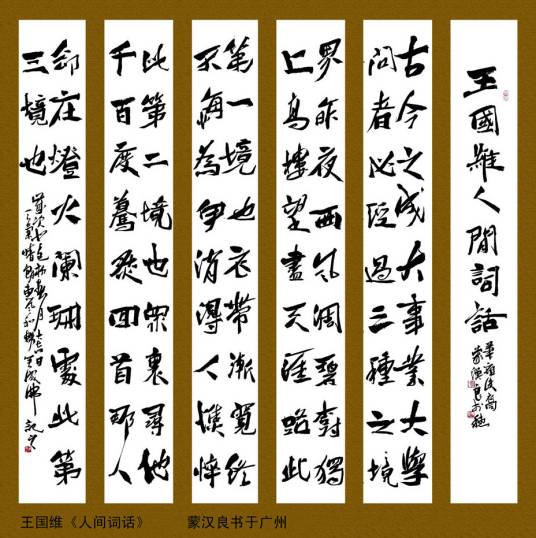 王國維人間詞話
古今之成大事業大學
問者必經過三種之境
界昨夜西風凋碧樹獨
上高樓望盡天涯路此
第一境也衣帶漸寬終
不悔為伊消得人憔悴
此第二境也眾裏尋他
千百度驀然回首那人
卻在燈火闌珊處此第
三境也
王国维《人间词话》 蒙汉良书于广州